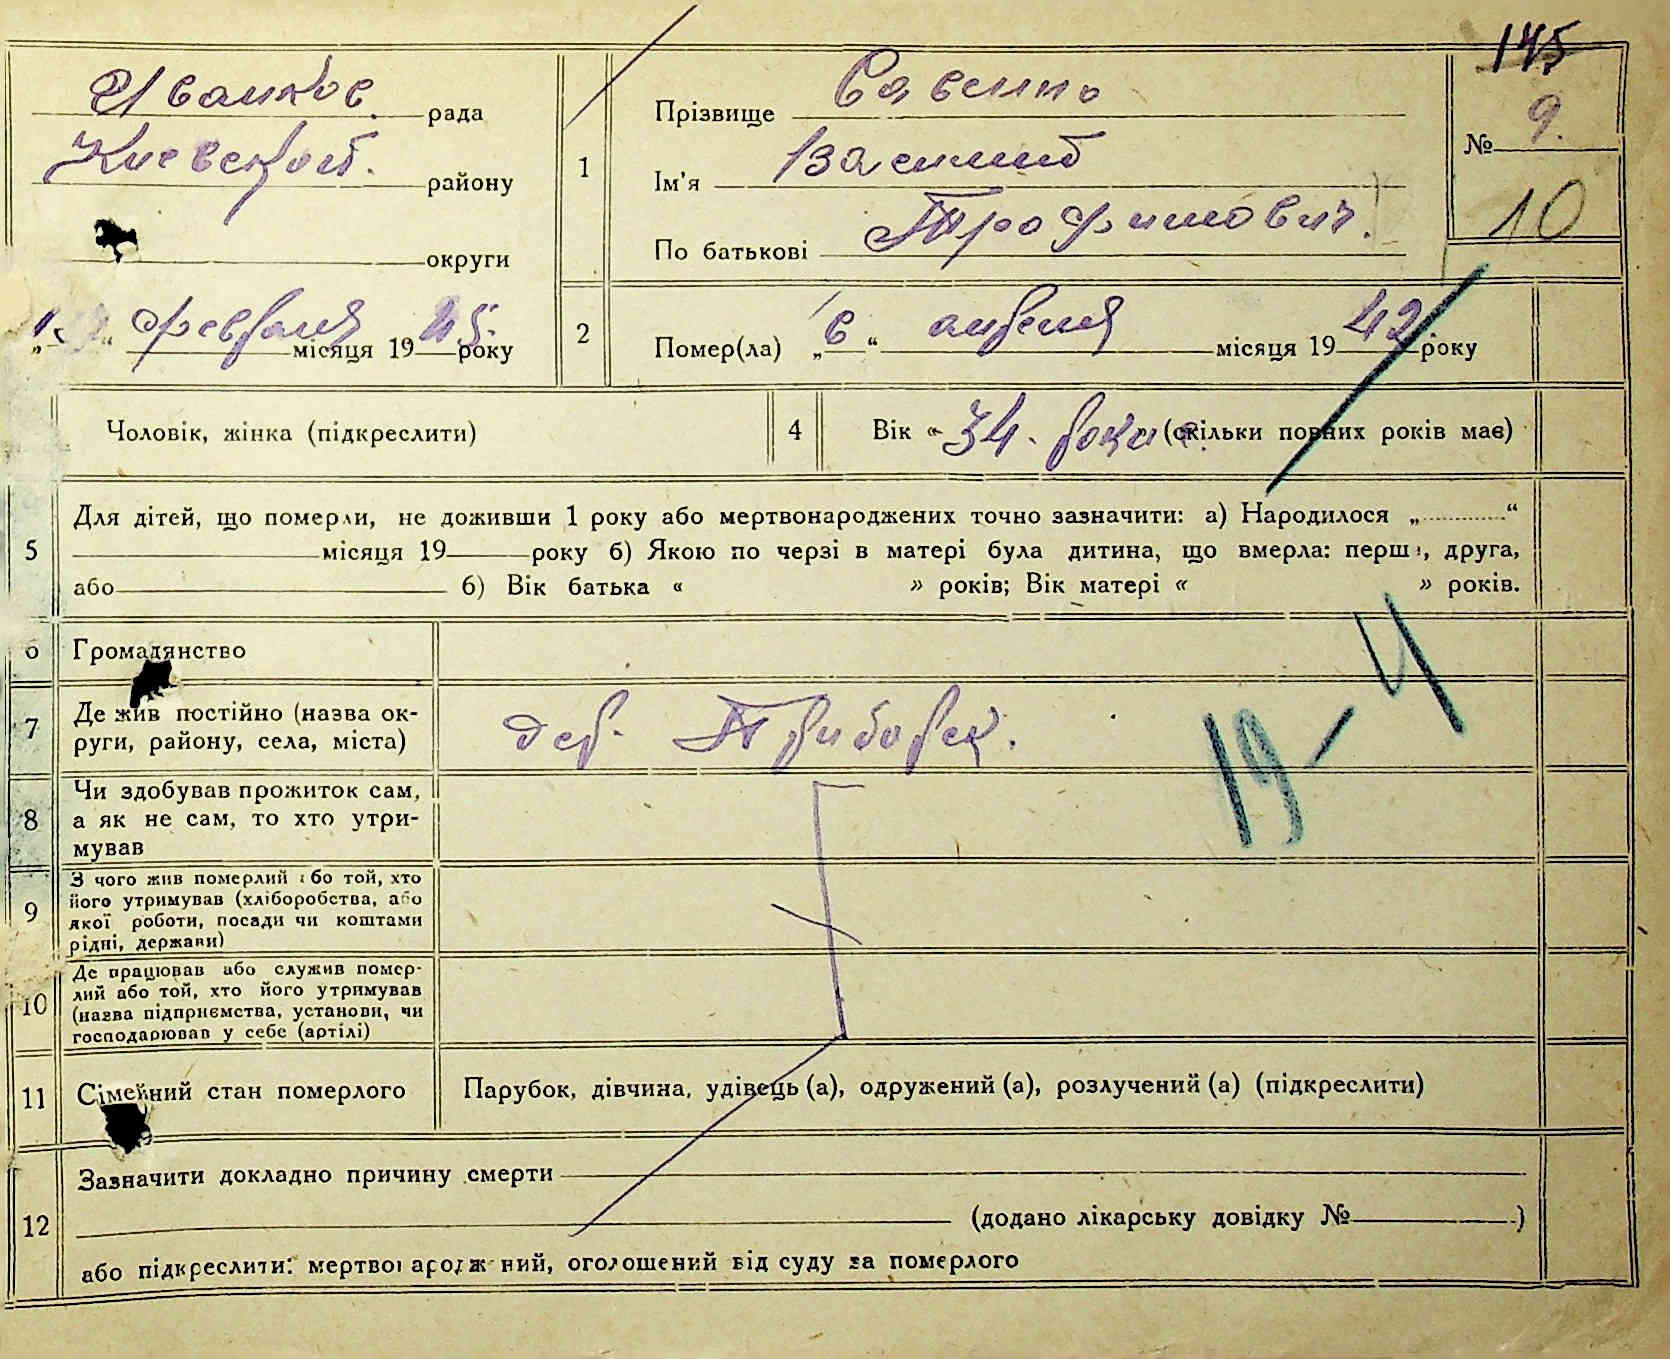 145
Иванков. рада
Киевской. району
округи
„ “ февраля місяця 19 45. року
1
Прізвище Савенко
Ім'я Василий
По батькові Трофимович.
№ 9.
10
2
Помер(ла) „6“ апреля місяця 19 42 року
Чоловік, жінка (підкреслити)
4
Вік « 34. роки » (скільки повних років має)
5
Для дітей, що померли, не доживши 1 року або мертвонароджених точно зазначити: а) Народилося „ “
місяця 19 року б) Якою по черзі в матері була дитина, що вмерла: перша, друга,
або б) Вік батька « » років; Вік матері « » років.
6
Громадянство
7
Де жив постійно (назва ок-
руги, району, села, міста)
дер.
19-4
8
Чи здобував прожиток сам,
а як не сам, то хто утри-
мував
9
З чого жив померлий або той, хто
його утримував (хліборобства, або
якої роботи, посади чи коштами
рідні, держави)
10
Де працював або служив помер-
лий або той, хто його утримував
(назва підприємства, установи, чи
господарював у себе (артілі)
11
Сімейний стан померлого
Парубок, дівчина, удівець (а), одружений (а), розлучений (а) (підкреслити)
12
Зазначити докладно причину смерти
(додано лікарську довідку № )
або підкреслити: мертвонароджений, оголошений від суду за померлого